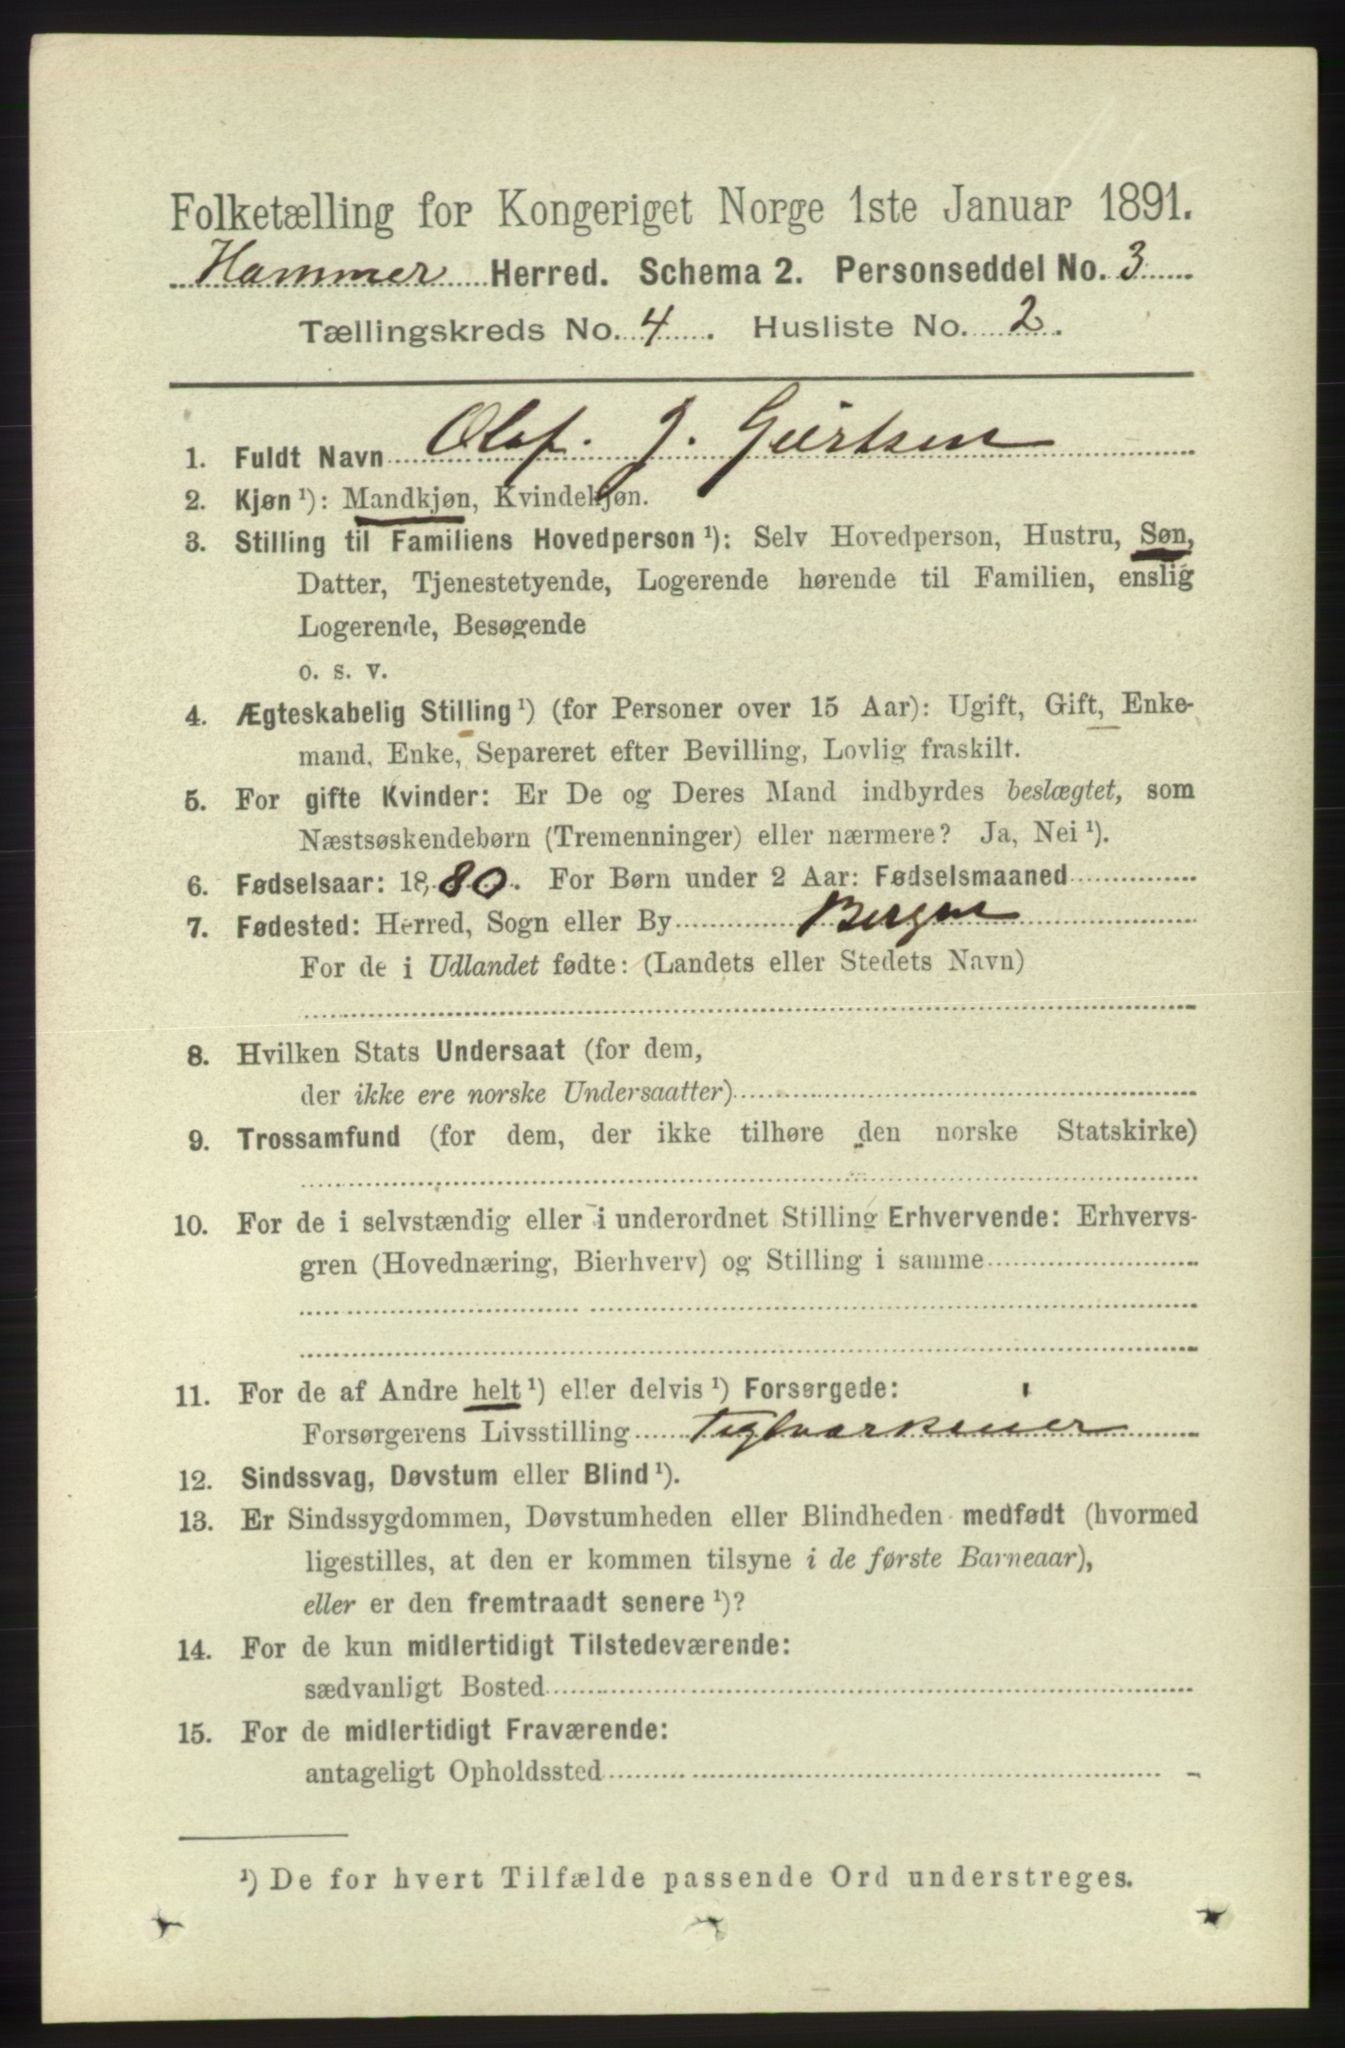 Folketælling for Kongeriget Norge 1ste Januar 1891.
Hammer Herred. Schema 2. Personseddel No. 3
Tællingskreds No. 4. Husliste No. 2.
1. Fuldt Navn Olaf. J. Giertsen
2. Kjøn ¹): Mandkjøn, Kvindekjøn.
3. Stilling til Familiens Hovedperson ¹): Selv Hovedperson, Hustru, Søn,
Datter, Tjenestetyende, Logerende hørende til Familien, enslig
Logerende, Besøgende
o. s. v.
4. Ægteskabelig Stilling ¹) (for Personer over 15 Aar): Ugift, Gift, Enke-
mand, Enke, Separeret efter Bevilling, Lovlig fraskilt.
5. For gifte Kvinder: Er De og Deres Mand indbyrdes beslægtet, som
Næstsøskendebørn (Tremenninger) eller nærmere? Ja, Nei ¹).
6. Fødselsaar: 1880. For Børn under 2 Aar: Fødselsmaaned
7. Fødested: Herred, Sogn eller By Bergen
For de i Udlandet fødte: (Landets eller Stedets Navn)
8. Hvilken Stats Undersaat (for dem,
der ikke ere norske Undersaatter)
9. Trossamfund (for dem, der ikke tilhøre den norske Statskirke)
10. For de i selvstændig eller i underordnet Stilling Erhvervende: Erhvervs-
gren (Hovednæring, Bierhverv) og Stilling i samme
11. For de af Andre helt ¹) eller delvis ¹) Forsørgede:
Forsørgerens Livsstilling Teglværkseier
12. Sindssvag, Døvstum eller Blind ¹).
13. Er Sindssygdommen, Døvstumheden eller Blindheden medfødt (hvormed
ligestilles, at den er kommen tilsyne i de første Barneaar),
eller er den fremtraadt senere ¹)?
14. For de kun midlertidigt Tilstedeværende:
sædvanligt Bosted
15. For de midlertidigt Fraværende:
antageligt Opholdssted
¹) De for hvert Tilfælde passende Ord understreges.